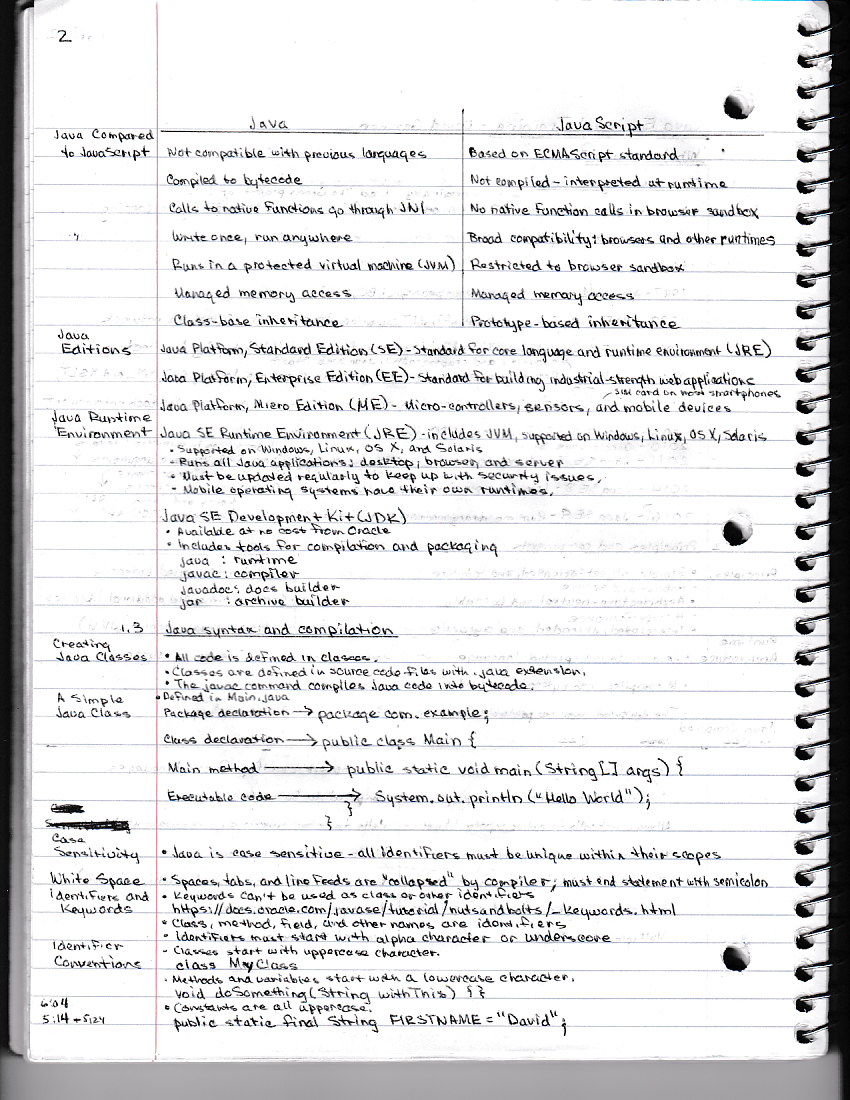 2
Java JavaScript
Java Compared
to JavaScript Not compatible with previous languages Based on ECMAScript standard
Compiled to bytecode Not compiled - interpreted at runtime
Calls to native functions go through JNI No native function calls in browser sandbox
Write once, run anywhere Broad compatibility: browsers and other runtimes
Runs in a protected virtual machine (JVM) Restricted to browser sandbox
Managed memory access Managed memory access
Class-base inheritance Prototype-based inheritance
Java
Editions Java Platform, Standard Edition (SE) - Standard for core language and runtime environment (JRE)
Java Platform, Enterprise Edition (EE) - Standard for building industrial-strength web applications
SIM card on most smartphones
Java Platform, Micro Edition (ME) - Micro-controllers, sensors, and mobile devices
Java Runtime
Environment Java SE Runtime Environment (JRE) - includes JVM, supported on Windows, Linux, OS X, Solaris
• Supported on Windows, Linux, OS X, and Solaris
• Runs all Java applications: desktop, browser, and server
• Must be updated regularly to keep up with security issues.
• Mobile operating systems have their own runtimes.
Java SE Development Kit (JDK)
• Available at no cost from Oracle
• Includes tools for compilation and packaging
java : runtime
javac : compiler
javadoc : docs builder
jar : archive builder
1.3 Java syntax and compilation
Creating
Java Classes • All code is defined in classes.
• Classes are defined in source code files with .java extension.
• The javac command compiles Java code into bytecode.
A Simple • Defined in Main.java
Java Class Package declaration → package com.example;
Class declaration → public class Main {
Main method → public static void main (String[] args) {
Executable code → System.out.println ("Hello World");
}
}
Case
Sensitivity • Java is case sensitive - all identifiers must be unique within their scopes
White Space • Spaces, tabs, and line feeds are "collapsed" by compiler; must end statement with semicolon
Identifiers and • Keywords can't be used as class or other identifiers
Keywords https://docs.oracle.com/javase/tutorial/nutsandbolts/_keywords.html
• Class, method, field, and other names are identifiers
• Identifiers must start with alpha character or underscore
Identifier • Classes start with uppercase character.
Conventions class MyClass
• Methods and variables start with a lowercase character.
void doSomething (String withThis) { }
6:04 • Constants are all uppercase.
5:14 + 5:24 public static final String FIRSTNAME = "David";